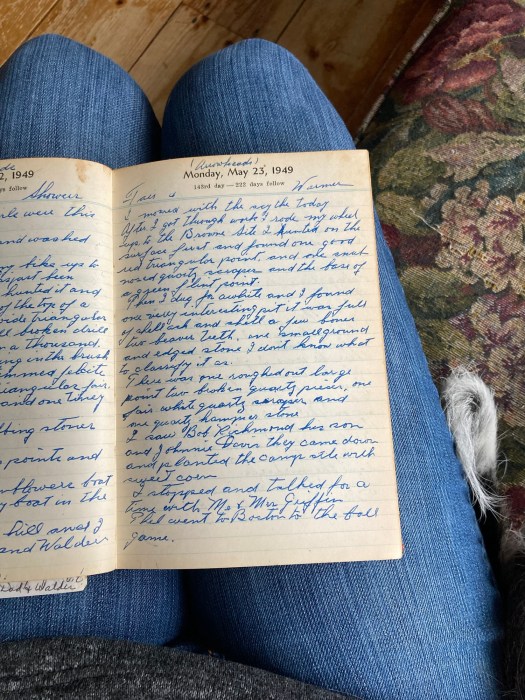 2, 1949
ys follow
Shower
were this
and washed
bike up to
hunted it and
of the top of a
wide triangular
broken drill
a thousand
in the brush
felsite
triangular fair
and one tiney
stones
points and
boat
boat in the
hill and I
and Walden
Dad & Walden
(Arrowheads)
Monday, May 23, 1949
143rd day—222 days follow
Warmer
I mowed with the scythe today
After I got through work I rode my wheel
up to the Browne site I hunted on the
surface first and found one good
red triangular point, and one snub
nosed quartz scraper and the base of
a green flint point.
Then I dug for awhile and I found
one very interesting pit it was full
of shell ash and shell a few bones
two beaver teeth, one small ground
and edged stone I don't know what
to classify it as.
There was one roughed out large
point two broken quartz pieces, one
fair white quartz scraper and
one quartz hammer stone
I saw Bob Richmond his son
and Johnnie Davis they came down
and planted the camp site with
sweet corn
I stopped and talked for a
time with Mr & Mrs Griffin
Phil went to Boston to the ball
game.